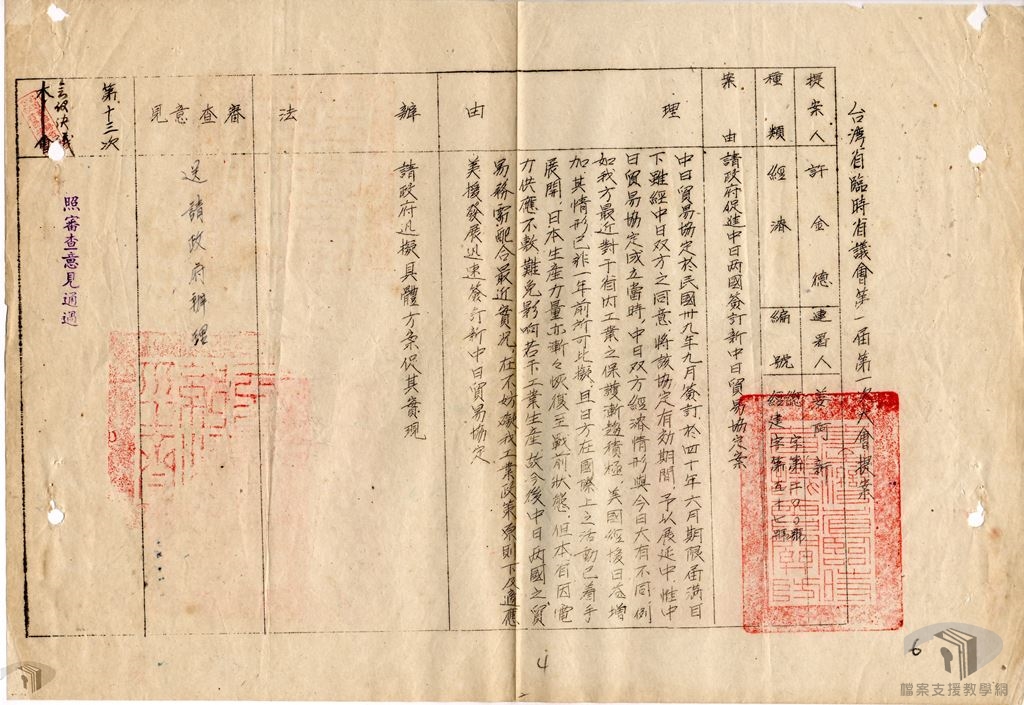 台湾省臨時省議會第一屆第一次大會提案
提案人 許金德 連署人 姜阿新
種類 經濟 編號 總字第 號 經建字第五十七號
案由 請政府促進中日两國簽訂新中日貿易協定案
理由
中日貿易協定於民國卅九年九月簽訂於四十年六月期限屆滿目
下雖經中日双方之同意將該協定有効期間予以展延中惟中
日貿易協定成立當時中日双方經濟情形與今日大有不同例
如我方最近對于省内工業之保護漸趨積極美國經援日在增
加其情形已非一年前所可比擬且日方在國際上之活動已着手
展開日本生產力量亦漸々恢復至戰前狀態但本省因電
力供應不敷難免影响若干工業生產故今後中日两國之貿
易務需配合最近實況在不妨礙我工業政策原則下及適應
美援發展迅速簽訂新中日貿易協定
辦法
請政府迅擬具體方案促其實现
審查意見
送請政府辦理
第十三次
會議決議
本會
照審查意見通過
4
6
檔案支援教學網